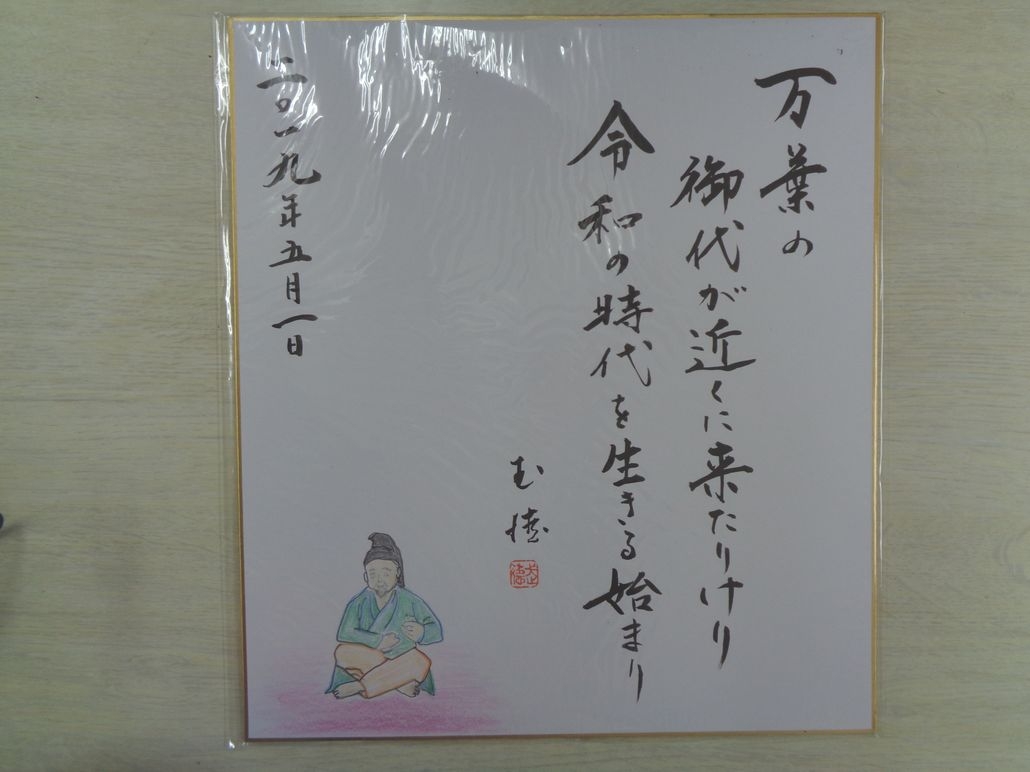 万葉の
御代が近くに来たりけり
令和の時代を生きる始まり
二〇一九年五月一日